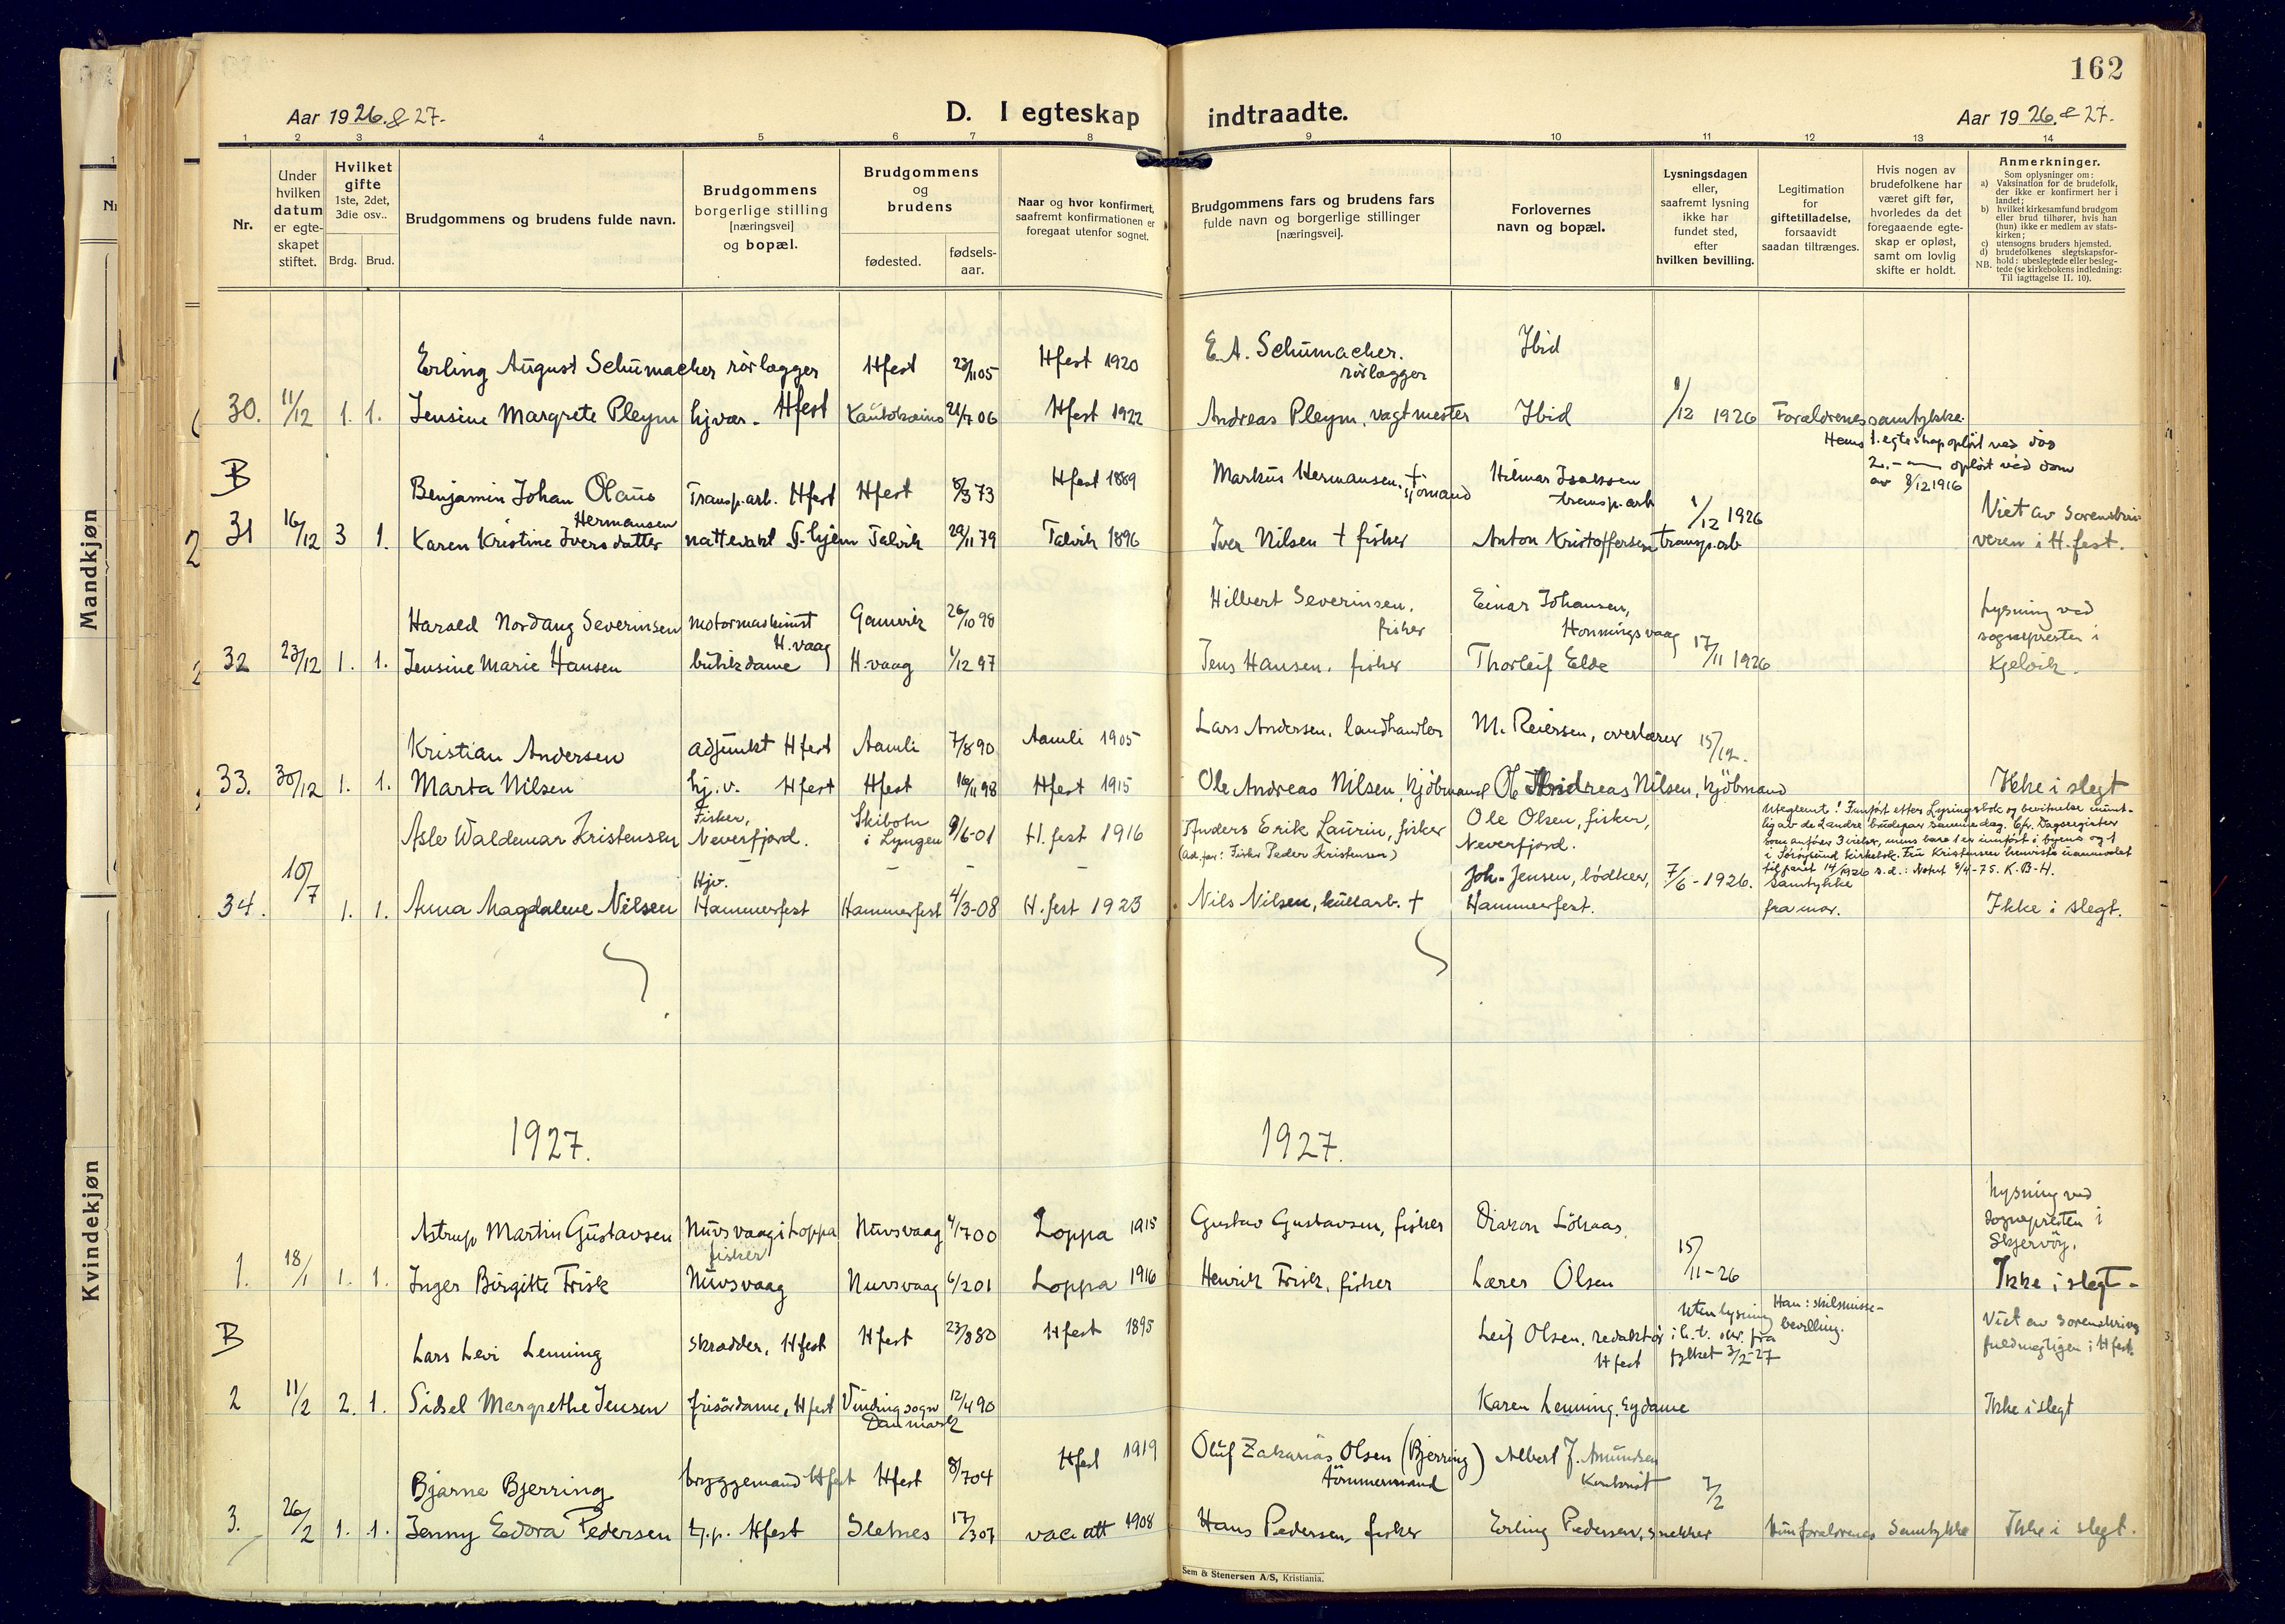 162
Aar 1926. & 27.
D. I egteskap indtraadte.
Aar 1926. & 27.
1 2 3 4 5 6 7 8 9 10 11 12 13 14
Nr.
Under
hvilken
datum
er egte-
skapet
stiftet.
Hvilket
gifte
1ste, 2det,
3die osv..
Brdg. Brud.
Brudgommens og brudens fulde navn.
Brudgommens
borgerlige stilling
[næringsvei]
og bopæl.
Brudgommens
og
brudens
fødested.
fødsels-
aar.
Naar og hvor konfirmert,
saafremt konfirmationen er
foregaat utenfor sognet.
Brudgommens fars og brudens fars
fulde navn og borgerlige stillinger
[næringsvei].
Forlovernes
navn og bopæl.
Lysningsdagen
eller,
saafremt lysning
ikke har
fundet sted,
efter
hvilken bevilling.
Legitimation
for
giftetilladelse,
forsaavidt
saadan tiltrænges.
Hvis nogen av
brudefolkene har
været gift før,
hvorledes da det
foregaaende egte-
skap er opløst,
samt om lovlig
skifte er holdt.
Anmerkninger.
Som oplysninger om:
a) Vaksination for de brudefolk,
der ikke er konfirmert her i
landet;
b) hvilket kirkesamfund brudgom
eller brud tilhører, hvis han
(hun) ikke er medlem av stats-
kirken;
c) utensogns bruders hjemsted.
d) brudefolkenes slegtskapsfor-
hold: ubeslegtede eller besleg-
NB. tede (se kirkebokens indledning:
Til iagttagelse II. 10).
Mandkjøn
Kvindekjøn
Erling August Schumacher rörlægger Hfest 23/11 05 Hfest 1920 E. A. Schumacher. rörlægger Ibid
30. 11/12 1. 1. Jensine Margrete Pleym hj.vær. Hfest Kautokeino 21/7 06 Hfest 1922 Andreas Pleym, vagtmester Ibid 1/12 1926 Forældrenes samtykke.
Hans 1. egteskap opløst ved död
2. - — opløst ved dom
av 8/12 1916
B Benjamin Johan Olaus Hermansen Transp.arb. Hfest Hfest 8/3 73 Hfest 1889 Markus Hermansen. † sjømand Hilmar Isaksen transp.arb
31 16/12 3 1. Karen Kristine Iversdatter nattevakt Talvik 29/11 79 Talvik 1896 Iver Nilsen † fisker Anton Kristoffersen transp.arb 1/12 1926 Viet av Sorenskri-
veren i H.fest.
Harald Nordang Severinsen motormaskinist H.vaag Gamvik 26/10 98 Hilbert Severinsen, fisker Einar Johansen, Honningsvaag
32 23/12 1. 1. Jensine Marie Hansen butikdame H.vaag 1/12 97 Jens Hansen, fisker Thorleif Elde 17/11 1926 Lysning ved
sognepresten i
Kjelvik.
Kristian Andersen adjunkt Hfest Aamli 7/8 90 Aamli 1905 Lars Andersen, landhandler M. Reiersen, overlærer 15/12.
33. 30/12 1. 1. Marta Nilsen hj.v. Hfest Hfest 16/11 98 Hfest 1915 Ole Andreas Nilsen, kjöbmand Ole Andreas Nilsen, kjöbmand Ikke i slegt
Asle Waldemar Kristensen Fisker, Neverfjord. Skibotn i Lyngen 9/6-01 H.fest 1916 Anders Erik Laurin, fisker
(Ad.far: Fisker Peder Kristensen) Ole Olsen, fisker, Neverfjord.
Uteglemt! Innført etter Lysningsbok og bevitnelse munt-
lig av de 2 andre brudepar samme dag. Cfr. Dagsregister
som anfører 3 vielser, mens bare 1 er innført i byens og 1
i Sørøysund kirkebok. Fru Kristensen henviste
til paret 14/1926 s.d.: Notat 9/4-75. K.B-H.
34. 10/7 1. 1. Anna Magdalene Nilsen Hjv. Hammerfest Hammerfest 4/3-08 H.fest 1923 Nils Nilsen, kullarb. † Joh. Jensen, bødker, Hammerfest. 7/6-1926. Samtykke
fra mor. Ikke i slegt.
1927. 1927.
Astrup Martin Gustavsen Nuvsvaag i Loppa fisker Nuvsvaag 4/7 00 Loppa 1915 Gustav Gustavsen, fisker Diakon Lökaas. Lysning ved
sognepresten i
Skjervöy.
1. 18/1 1. 1. Inger Birgitte Frisk Nuvsvaag Nuvsvaag 6/2 01 Loppa 1916 Henrik Frisk, fisker Lærer Olsen 15/11-26 Ikke i slegt -
B Lars Levi Lenning skrædder, Hfest Hfest 23/8 80 Hfest 1895 Leif Olsen, redaktör Hfest Uten lysning
i h.t. skr. fra
fylket 3/2-27 Han: skilsmisse-
bevilling. Viet av sorenskriver
fuldmegtigen i Hfest.
2 11/2 2. 1. Sidsel Margrethe Jensen frisördame, Hfest Vinding sogn Danmark 12/4 90 Karen Lenning. Ikke i slegt
Bjarne Bjerring bryggemand Hfest Hfest 8/7 04 Hfest 1919 Oluf Zakarias Olsen (Bjerring) tömmermand Albert J. Amundsen Kontorist
3. 26/2 1. 1. Jenny Edora Pedersen tj.p. Hfest Sletnes 17/3 07 vac. att 1908 Hans Pedersen, fisker Erling Pedersen, snekker 7/2 Hun forældrenes Samtykke Ikke i slegt.
Sem & Stenersen A/S, Kristiania.